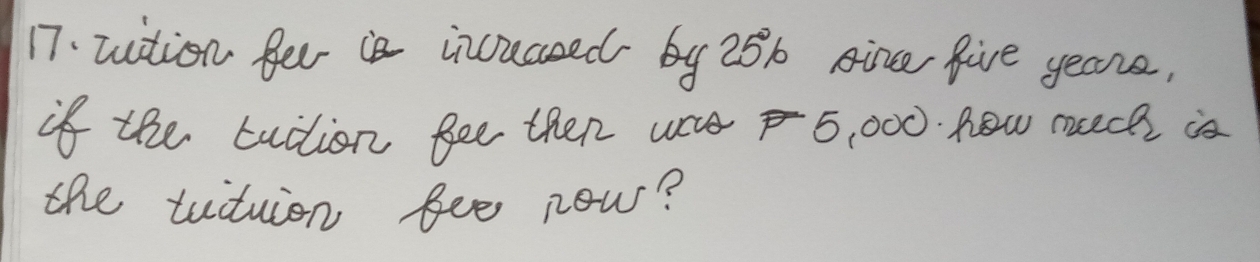 17. Tuition fee is increased by 25% since five years,
if the tuition fee then was ₱ 5,000. how much is
the tuituion fee now?